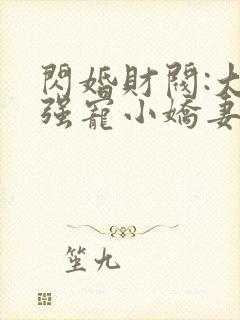 閃婚財閥:大
强寵小嬌妻
笙九